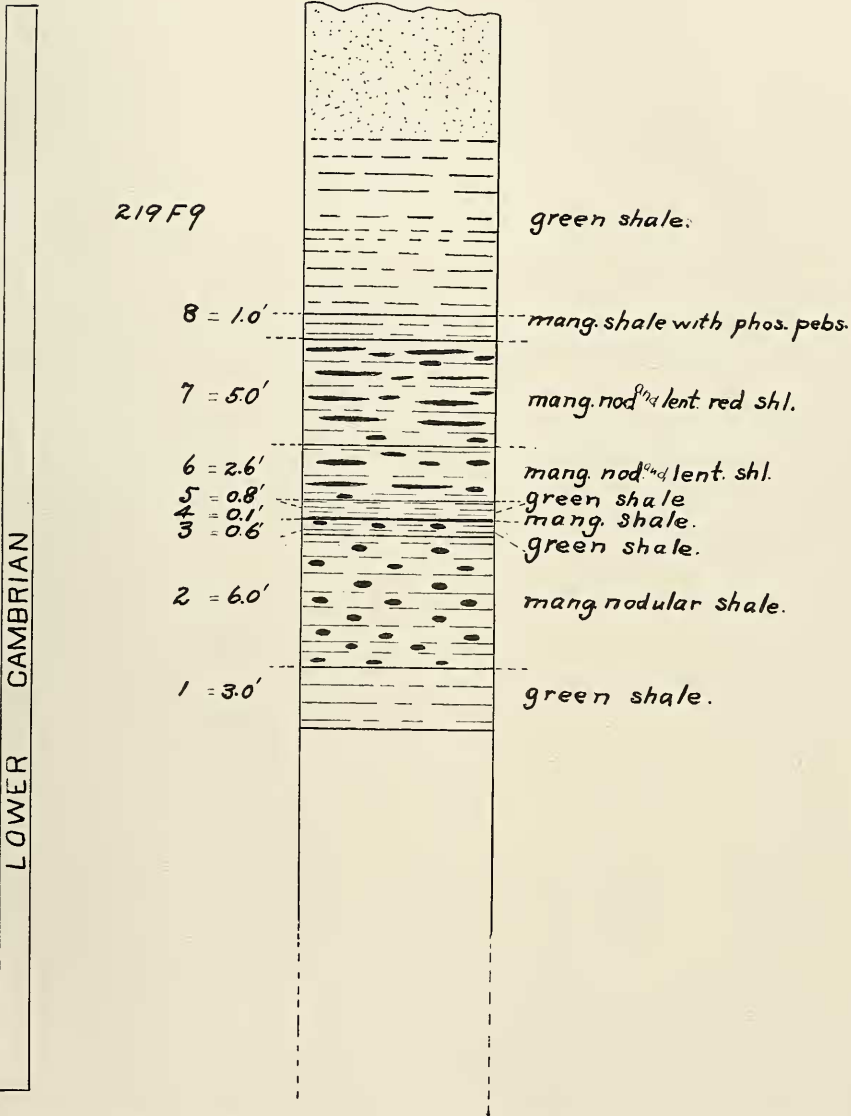 LOWER CAMBRIAN
219F9 green shale.
8 = 1.0' mang. shale with phos. pebs.
7 = 5.0' mang. nod and lent. red shl.
6 = 2.6' mang. nod and lent. shl.
5 = 0.8' green shale
4 = 0.1' mang. shale.
3 = 0.6' green shale.
2 = 6.0' mang. nodular shale.
1 = 3.0' green shale.